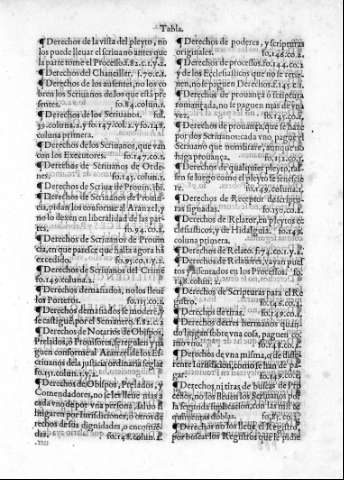 Tabla.
¶ Derechos de la vista del pleyto, no
los puede lleuar el scriuano antes que
la parte tome el Processo. f.82.c.1.y.2.
¶ Derechos del Chanciller. f.70.c.1.
¶ Derechos de los ausentes, no los co
bren los Scriuanos de los que está pre
sentes. fo.84.colun.1.
¶ Derechos de los Scriuanos. fol.
colunna primera.
¶ Derechos de los Scriuanos, que van
con los Executores. fo.147.co.1.
¶ Derechos de Scriuanos de Orde-
nes. fo.145. colun.1.
¶ Derechos de Scriuanos de Prouin
cia, pidan los conforme al Aranzel, y
no lo dexen en liberalidad de las par-
tes. fo.94. co.2.
¶ Derechos de Scriuanos de Prouin
cia, en que paresce que hasta agora há
excedido. fo.95.co.1.y.2.
¶ Derechos de Scriuanos del Crimé
fo.149.colūna.1.
¶ Derechos demasiados, no los lleué
los Porteros. fo.115.co.2.
¶ Derechos demasiados se modere, y
se castigue, por el Semanero. f.82.c.2
¶ Derechos de Notarios de Obispos,
Prelados, ò Prouisores, se reglen y pa
guen conforme al Aranzel de los Es-
criuanos dela justicia ordinaria seglar
fo.151.colun.1.y.2.
¶ Derechos de Obispos, Prelados, y
Comendadores, no se les lleue mas a
cada vno de por vna persona, saluo si
litigaren por Iurisdiciones, ò otros de
rechos de sus dignidades, o encomié-
das. fo.148.colun.1.
¶ Derechos de poderes, y scripturas
originales. fo.148.co.2.
¶ Derechos de processos. fo.144.co.2
y de los Ecclesiasticos que no se retu-
uieren, no se paguen Derechos. f.143.c.1.
¶ Derechos de prouança ò scriptura
prouançada, no se paguen mas de vna
vez.
¶ Derechos de prouança, que se haze
por dos Scriuanos: cada vno pague el
Scriuano que nombrare, aunque no
haga prouança. fo.152.co.1.
¶ Derechos de qualquier pleyto, tas-
sen se luego como el pleyto se senecia-
re. fo.149.coluna.1.
¶ Derechos de Receptor descriptu-
ras signadas. fo.150.co.1.
¶ Derechos de Relator, en pleytos ec
clesiasticos, y de Hidalguia. fo.148.
coluna primera.
¶ Derechos de Relato. f.74.co.1.y.2.
¶ Derechos de Relatores, vayan pues
tos y assentados en los Processos. fo.
148.colun.2.
¶ Derechos de Scripturas para el Re
gistro. fo.148.co.2.
¶ Derechos de tiras. fo.149.co.2.
¶ Derechos de tres hermanos quan-
do litigan sobre vna cosa, paguen co-
mo vno. fo.148.co.2.
¶ Derechos de vna misma, o de diuer
gar. fo.148.co.2.
¶ Derechos ni tiras de buscas de Pro
cesos, no los lleuen los Scriuanos por
la segunda suplicacion, con las mil y
quinientas doblas. fo.85.co.2.
¶ Derechos no los lleue el Registro,
por buscar los Registros que le pidié